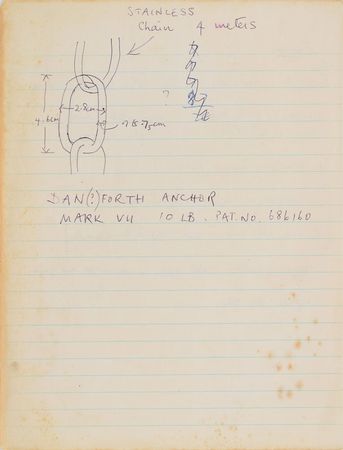 STAINLESS
Chain 4 meters
?
4.6cm
2.8cm
.75cm
DAN(?)FORTH ANCHOR
MARK VII 10 LB. PAT. NO. 686160